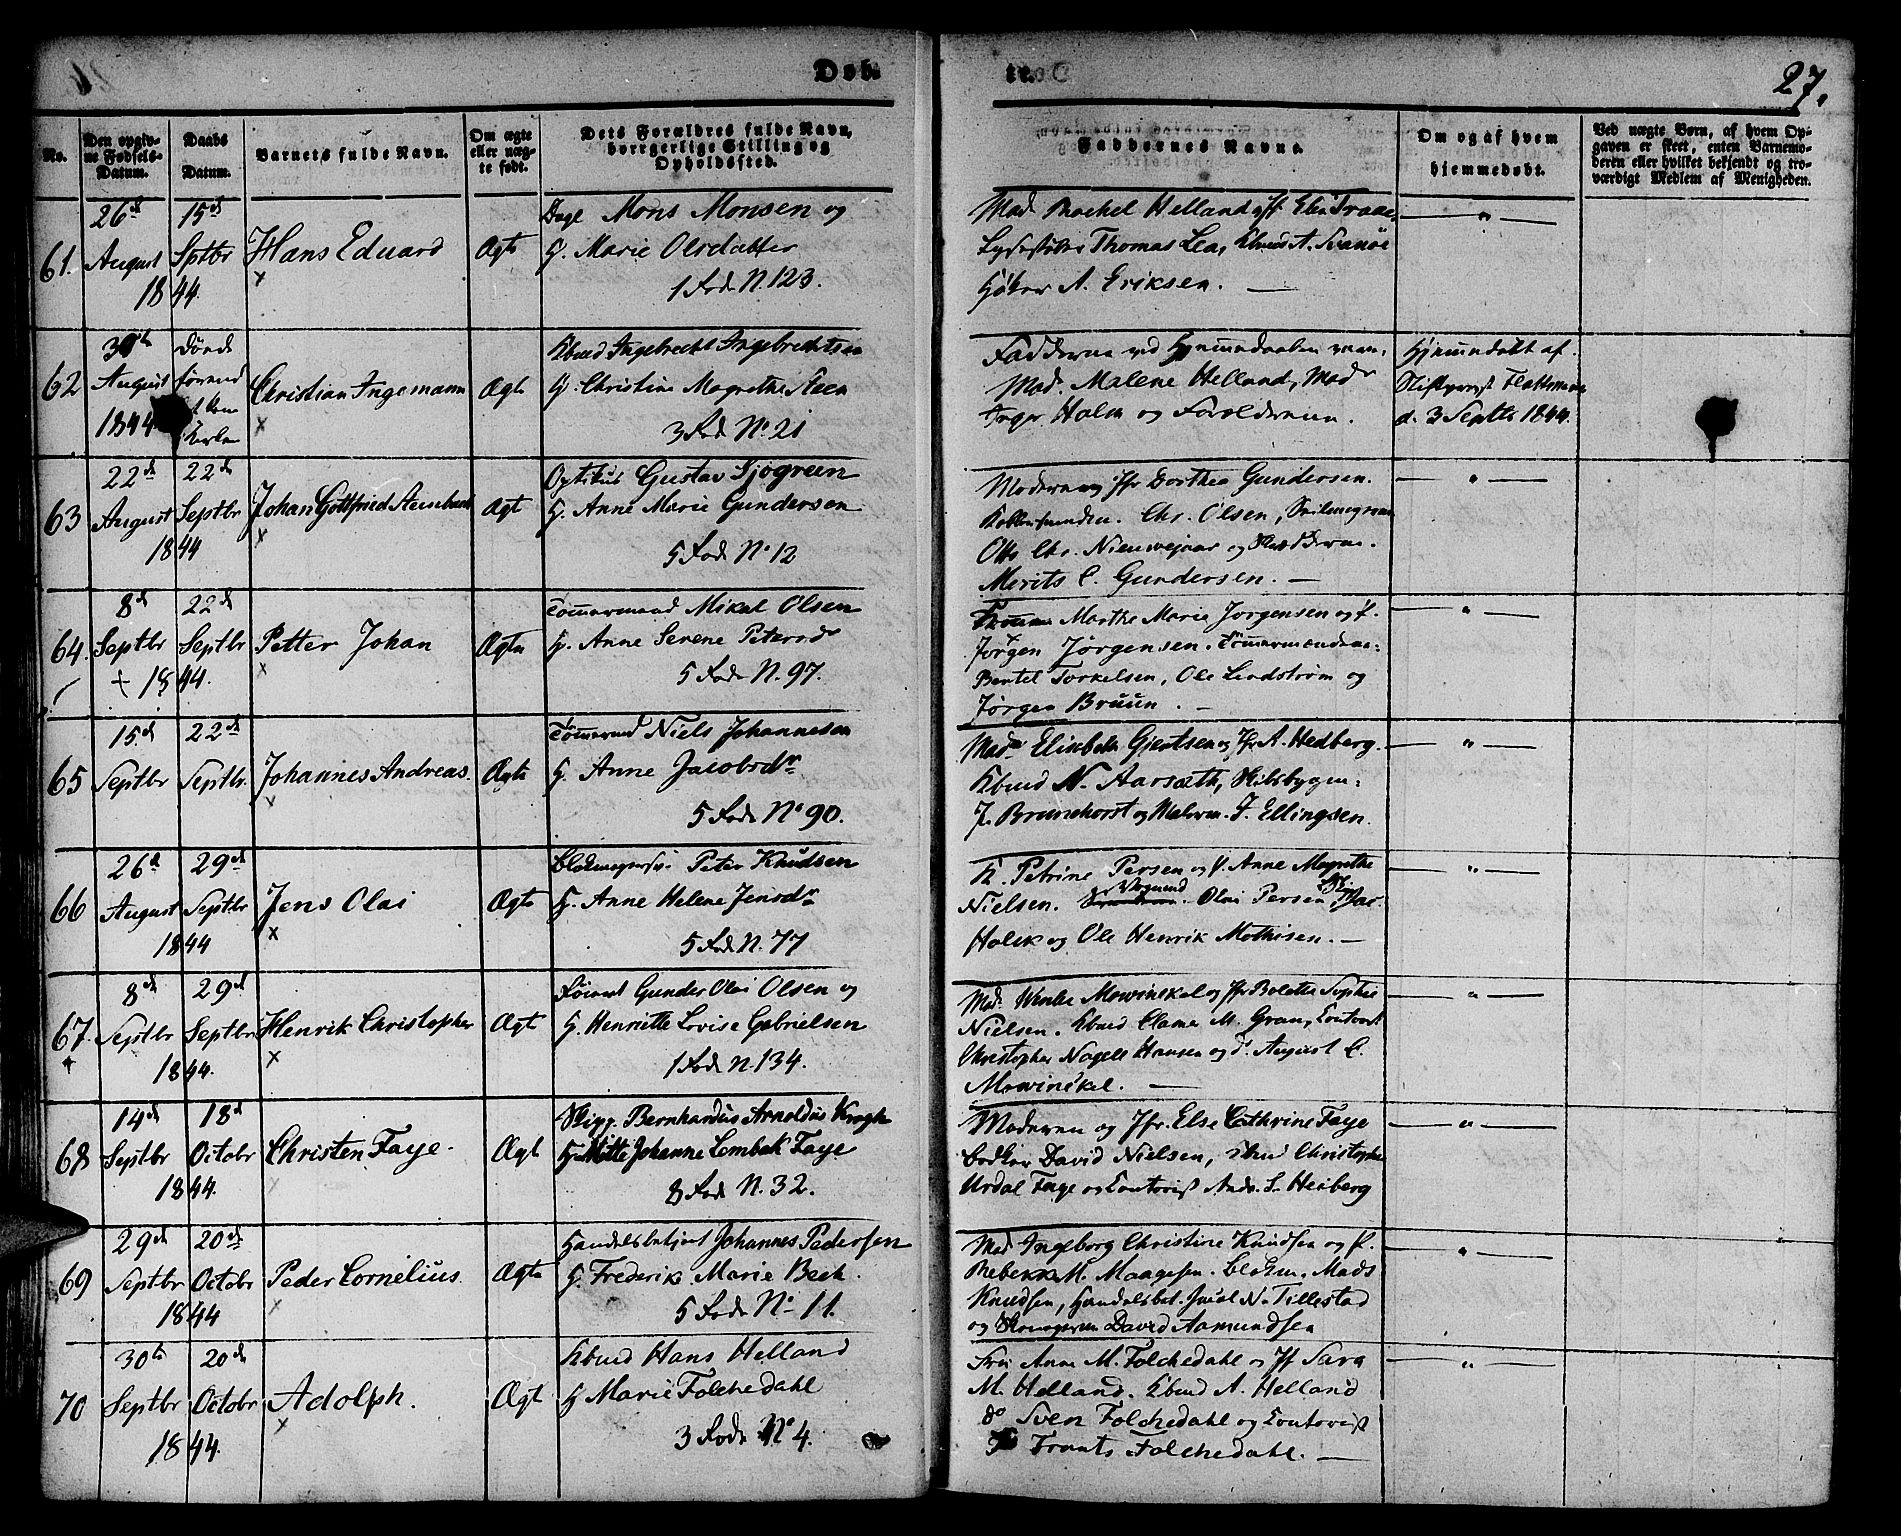 Døb-
te.
27.
No.
Den opgiv-
ne Fødsels-
Datum.
Daabs
Datum.
Barnets fulde Navn.
Om ægte
eller næg-
te født.
Dets Forældres fulde Navn,
borgerlige Stilling og
Opholdssted.
Faddernes Navne.
Om og af hvem
hjemmedøbt.
Ved nægte Børn, af hvem Op-
gaven er skeet, enten Barnemo-
deren eller hvilket bekjendt og tro-
værdigt Medlem af Menigheden.
61.
26de August 1844.
15de Sptbr
Hans Eduard
Ægte
Mons Monsen og
H. Marie Olsdatter
1 Rode N. 123.
Mad. Rachel Helland Jf
Thomas Lea, A. Svanøe
A. Eriksen. —
"
62
30te August 1844
Christian Ingemann
Ægte
Kbmd Ingebrecht Ingebrechtsen
H. Christine Magrethe Steen
3 Rode No. 21
Fadderne ved Hjemmedaaben vare,
Mad. Malene Helland, Madr
Inger Holm og Forældrene.
Hjemmedøbt af
d. 3 Septbr 1844.
63
22de August 1844
22de Septbr
Johan Gottfried
Ægt
Optikus Gustav Sjøgreen
H. Anne Marie Gundersen
5 Rode No 12
Moderen og Jfr Dorthea Gundersen.
Chr. Olsen,
Otto Chr. Nieuwejaar og
Merits C. Gundersen. —
"
64.
8de Septbr 1844.
22de Septbr
Petter Johan
Ægte
Tømmermand Mikal Olsen
H. Anne Serene Petersdr
5 Rode N. 97.
Marthe Marie Jørgensen og P.
Jørgen Jørgensen. Tømmermændene
Bentel Torkelsen, Ole Lindstrøm og
Jørgen Bruun. —
"
65
15de Septbr
22de Septbr.
Johannes Andreas.
Ægte
Tømmermd Niels Johannesen
H. Anne Jacobsdr
5 Rode No 90.
Madm Elisabeth Gjertsen og Jfr A. Hedberg.
Kbmd N. Aarsæth, Skibsbygm:
J. Brunchorst og J. Ellingsen
"
66
26de August 1844
29de Septbr
Jens Olai
Ægte
Peter Knudsen
H. Anne Helene Jensdr
5 Rode N. 77
K. Petrine Persen og P. Anne Magrethe
Nielsen. Olai Persen
og Ole Henrik Mathisen. —
"
67.
8de Septbr 1844.
29de Septbr
Henrik Christopher
Ægt
Gunder Olai Olsen og
H. Henriette Lovise Gabrielsen
1 Rode N. 134.
Mad. Wenke Mowinckel og Jfr Bolette Sophie
Nielsen. Kbmd Claus M. Gran, Contorist
Christopher Nagell Hansen og d. August C.
Mowinckel. —
"
68
14de Septbr 1844.
18de Octobr
Christen Faye.
Ægt
Skipp. Bernhardus Arnoldus Krogh
H. Mitte Johanne Lembak Faye
8 Rode N. 32.
Moderen og Jfr. Else Cathrine Faye
Bødker David Nielsen, Kbmd Christopher
Urdal Faye og Contorist Andr. S. Heiberg
"
69
29de Septbr 1844
20de Octobr
Peder Cornelius.
Ægte
Handelsbetjent Johannes Pedersen
H. Frederike Marie Bech.
5 Rode No 11.
Mad Ingeborg Christine Knudsen og P.
Rebekka M. Maagesen. Mads
Knudsen, Handelsbet. Jacob N. Tillestad
og David Aamundsen
"
70
30te Septbr 1844.
20de Octobr
Adolph.
Ægt
Kbmd Hans Helland
H. Marie Folchedahl
3 Rode No 4.
Fru Anna M. Folchedahl og Jf Sara
M. Helland. Kbmd A. Helland
do Sven Folchedahl og Contorist
Trants Folchedahl. —
"